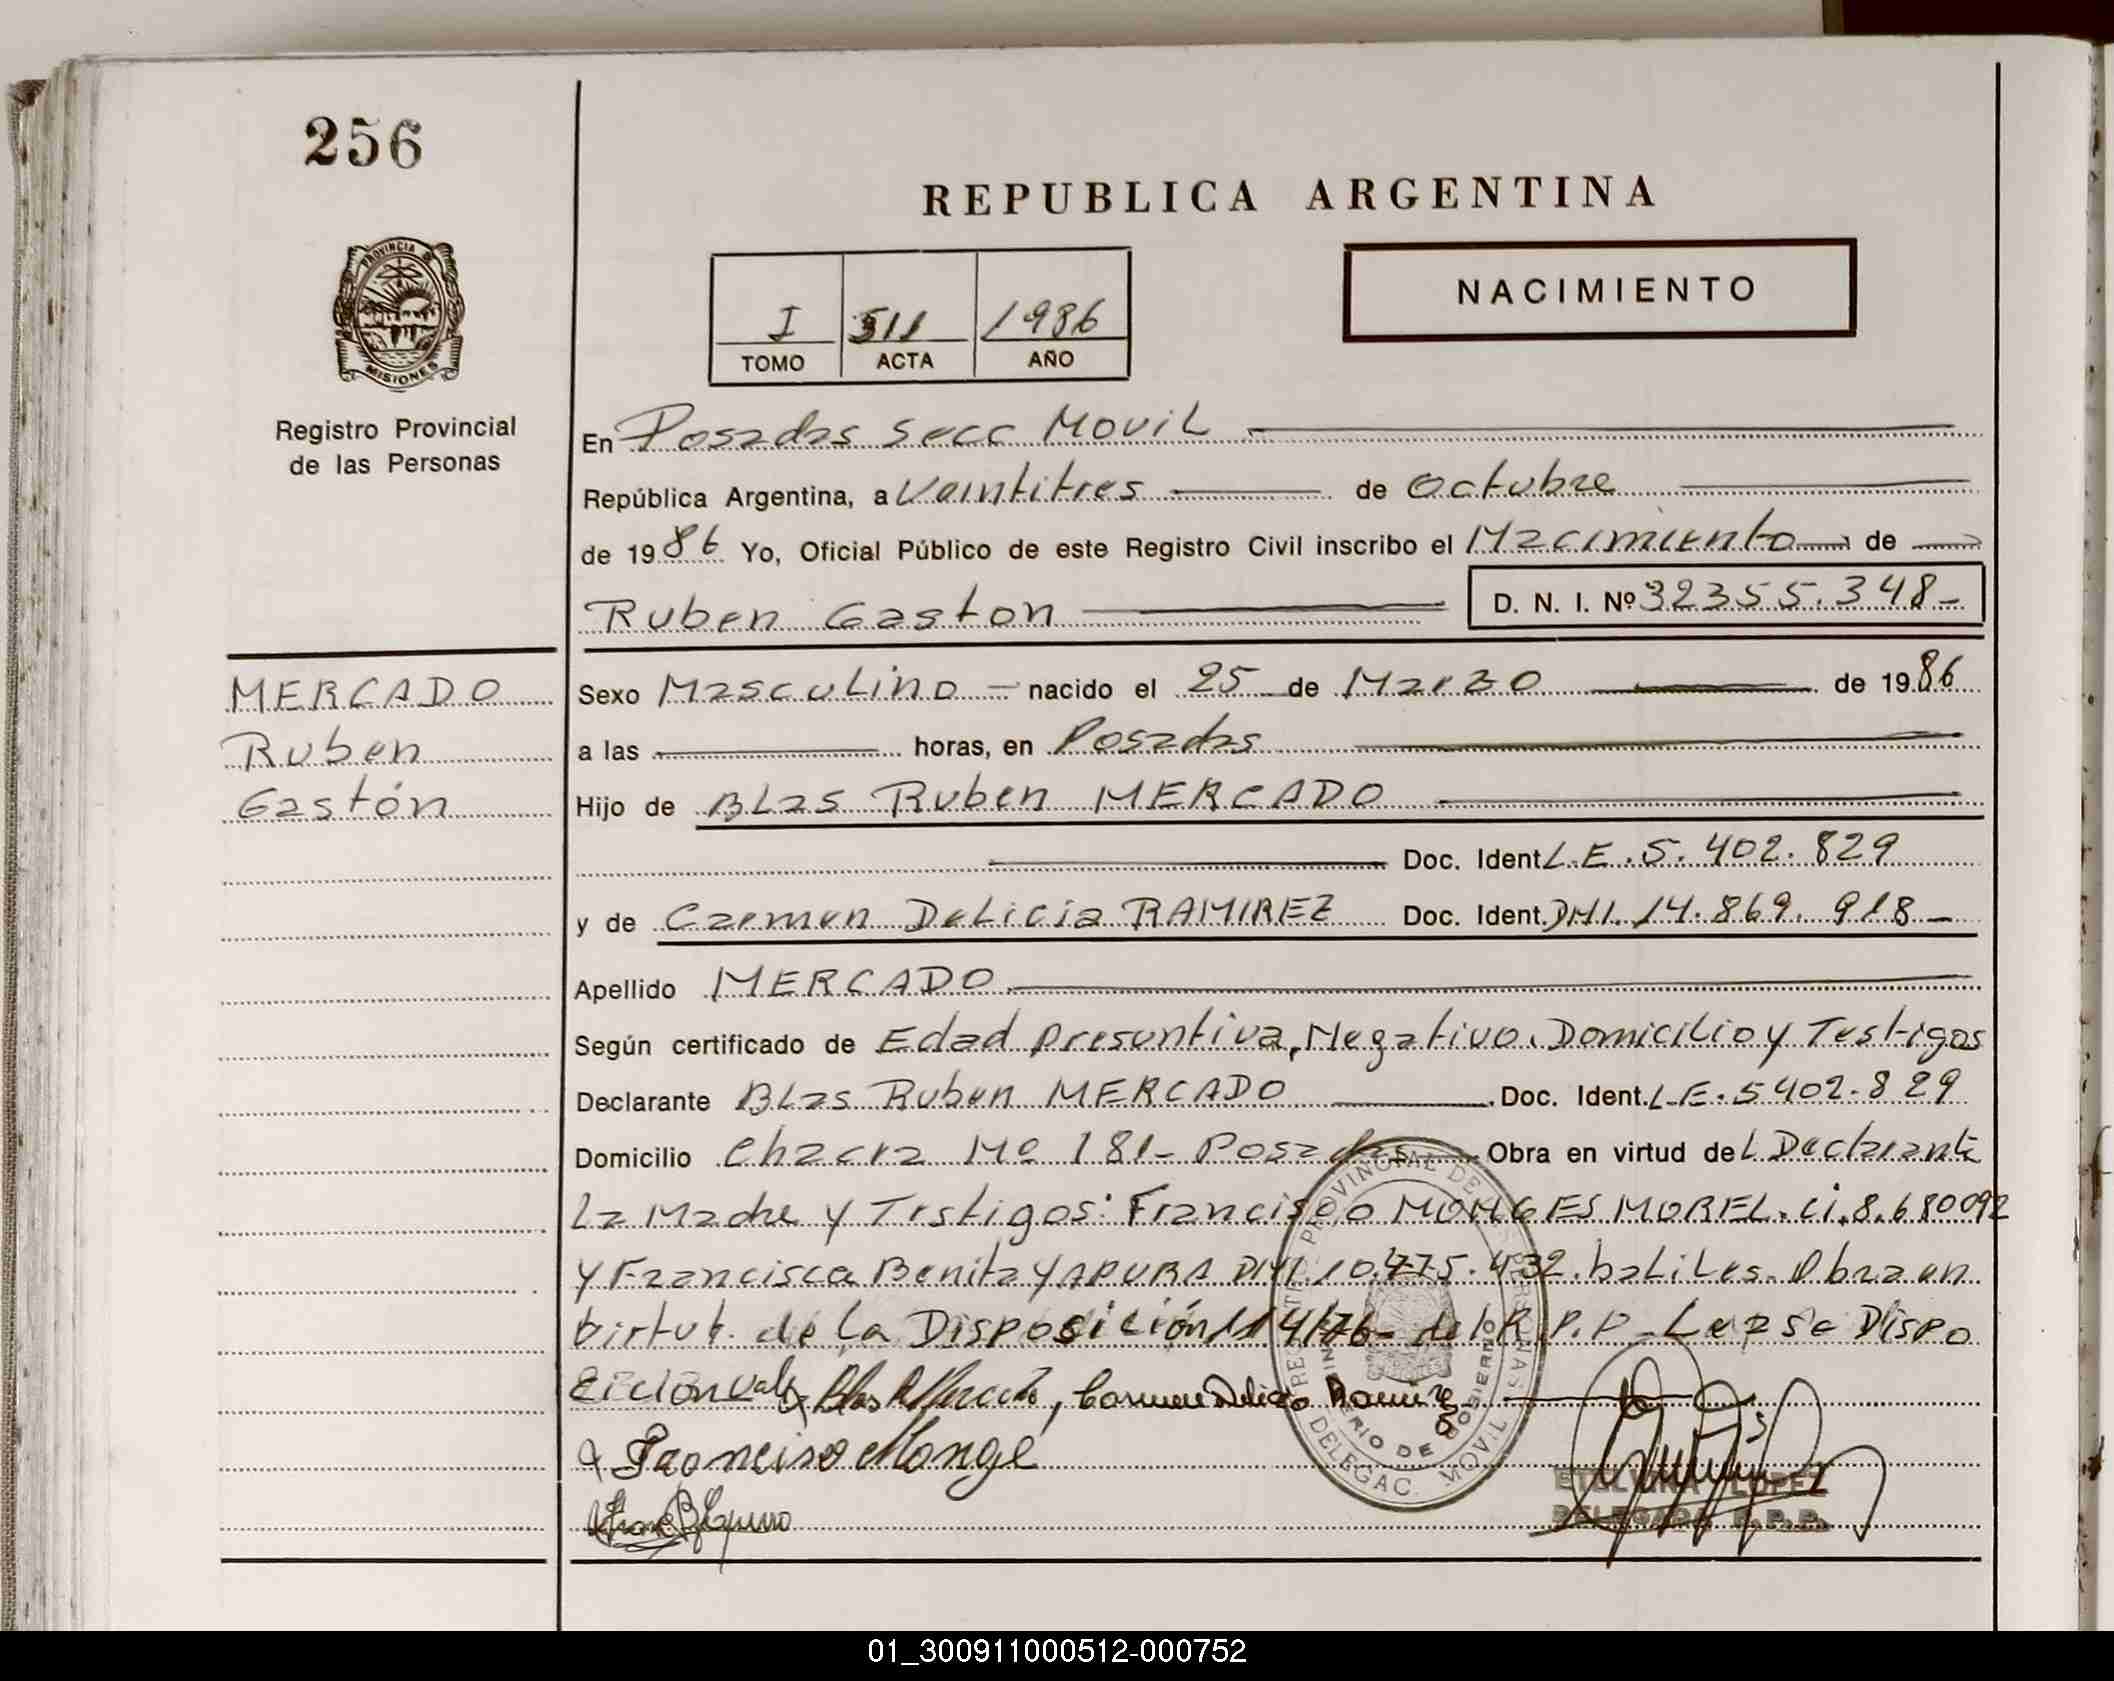 256
REPUBLICA ARGENTINA
PROVINCIA DE
MISIONES
Registro Provincial
de las Personas
I 511 1986
TOMO ACTA AÑO
NACIMIENTO
En Posadas Secc Movil
República Argentina, a Veintitres de Octubre
de 1986 Yo, Oficial Público de este Registro Civil inscribo el Nacimiento de
Ruben Gaston D. N. I. Nº 32355.348-
MERCADO
Ruben
Gastón
Sexo Masculino - nacido el 25 de Marzo de 1986
a las horas, en Posadas
Hijo de Blas Ruben MERCADO
Doc. Ident L.E. 5.402.829
y de Carmen Delicia RAMIREZ Doc. Ident. DNI. 14.869.918-
Apellido MERCADO
Según certificado de Edad presuntiva, Negativo. Domicilio y Testigos
Declarante Blas Ruben MERCADO Doc. Ident. L.E. 5402.829
Domicilio Chacra Nº 181- Posadas Obra en virtud del Declarante
La Madre y Testigos: Francisco MONGES MOREL. Ci. 8.680092
y Francisca Benita YAPURA DNI. 10.475.432. baliles. Obra en
birtut. de la Disposición 114/76- del R.P.P- Lease Dispo
cicion vale Blas R Mercado, Carmen Delicia Ramirez
Francisco Monge
REGISTRO PROVINCIAL DE LAS PERSONAS
MINISTERIO DE GOBIERNO
DELEGAC. MOVIL
LOPEZ
DELEGADA R.P.P.
01_300911000512-000752